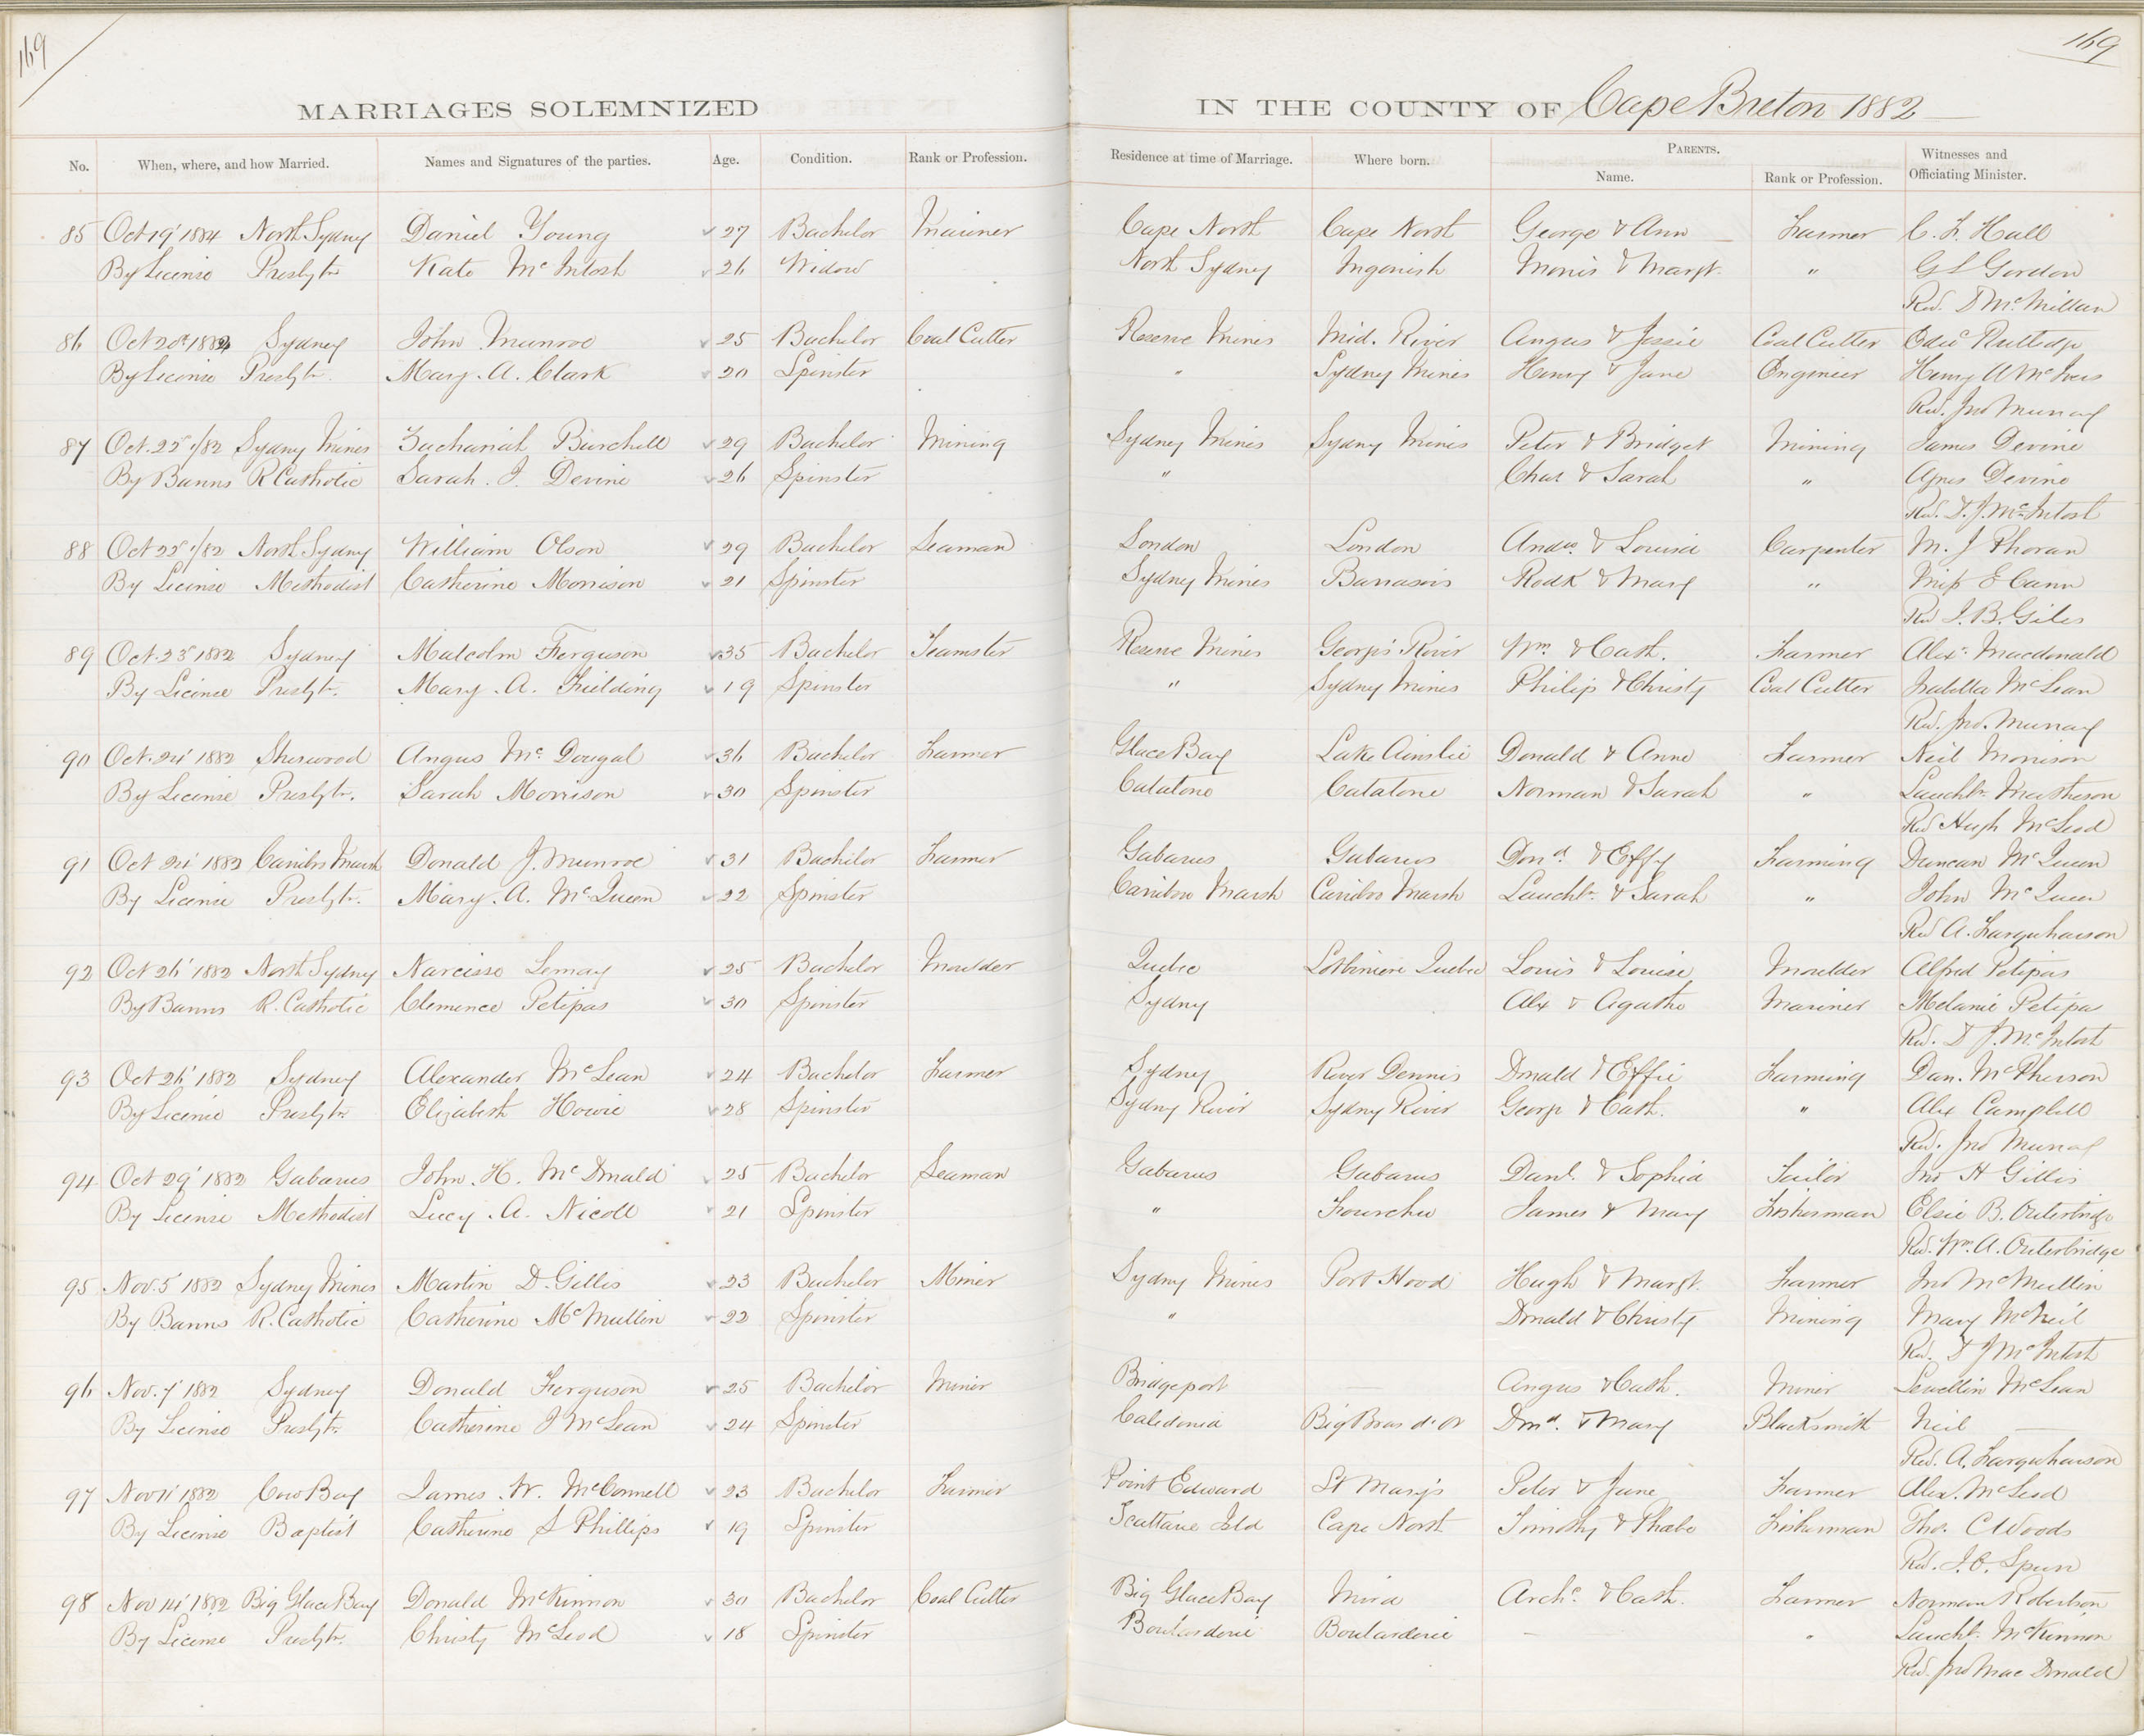 169
169
MARRIAGES SOLEMNIZED IN THE COUNTY OF Cape Breton 1882
No. When, where, and how Married. Names and Signatures of the parties. Age. Condition. Rank or Profession. Residence at time of Marriage. Where born. PARENTS. Name. Rank or Profession. Witnesses and Officiating Minister.
85 Oct 19' 1882 North Sydney Daniel Young 27 Bachelor Mariner Cape North Cape North George & Ann Farmer C. F. Hall
By License Presbytn Kate McIntosh 26 Widow North Sydney Ingonish Morris & Margt. " G L Gordon
Rev. D McMillan
86 Oct 20th 1882 Sydney John Munroe 25 Bachelor Coal Cutter Reserve Mines Mid. River Angus & Jessie Coal Cutter Rutledge
By License Presbytn. Mary A. Clark 20 Spinster " Sydney Mines Henry & Jane Engineer Henry A McIvers
Rev. Jno Murray
87 Oct. 22nd/82 Sydney Mines Zachariah Burchell 29 Bachelor Mining Sydney Mines Sydney Mines Peter & Bridget Mining James Devine
By Banns R Catholic Sarah. J. Devine 26 Spinster " Chas & Sarah " Agnes Devine
Rev. D. J. McIntosh
88 Oct 22nd/82 North Sydney William Olson 29 Bachelor Seaman London London Andw. & Louisa Carpenter M. J Phoran
By License Methodist Catherine Morrison 21 Spinster Sydney Mines Barrasois Rodk & Mary " Miss E Cann
Rev J. B. Giles
89 Oct. 23' 1882 Sydney Malcolm Ferguson 35 Bachelor Teamster Reserve Mines George's River Wm. & Cath. Farmer Alexr. Macdonald
By License Presbytn. Mary. A. Fielding 19 Spinster " Sydney Mines Philip & Christy Coal Cutter Isabella McLean
Rev. Jno. Murray
90 Oct. 24' 1882 Sherwood Angus McDougal 36 Bachelor Farmer Glace Bay Lake Ainslie Donald & Anne Farmer Neil Morrison
By License Presbytn. Sarah Morrison 30 Spinster Catalone Catalone Norman & Sarah " Lauchln. Matheson
Rev Hugh McLeod
91 Oct 24' 1882 Caribo Marsh Donald J. Munroe 31 Bachelor Farmer Gabarus Gabarus Dond. & Effy Farming Duncan McQueen
By License Presbytn. Mary. A. McQueen 22 Spinster Caribou Marsh Cariboo Marsh Lauchln. & Sarah " John McQueen
Rev A. Farquharson
92 Oct 26' 1882 North Sydney Narcisse Lemay 25 Bachelor Moulder Quebec Lotbiniere Quebec Louis & Louise Moulder Alfred Petipas
By Banns R. Catholic Clemence Petipas 30 Spinster Sydney Alex & Agathe Mariner Melanie Petipas
Rev. D J. McIntosh
93 Oct 26' 1882 Sydney Alexander McLean 24 Bachelor Farmer Sydney River Dennis Donald & Effie Farming Dan. McPherson
By License Presbytn Elizabeth Howie 28 Spinster Sydney River Sydney River George & Cath. " Alex Campbell
Rev. Jno Murray
94 Oct 29' 1882 Gabarus John. H. McDonald 25 Bachelor Seaman Gabarus Gabarus Danl. & Sophia Sailor Jno H Gillis
By License Methodist Lucy. A. Nicoll 21 Spinster " Fourchu James & Mary Fisherman Elsie B. Outerbridge
Rev. Wm. A. Outerbridge
95 Nov. 5' 1882 Sydney Mines Martin D. Gillis 23 Bachelor Miner Sydney Mines Port Hood Hugh & Margt. Farmer Jno McMullin
By Banns R. Catholic Catherine McMullin 22 Spinster " Donald & Christy Mining Mary McNeil
Rev. D J McIntosh
96 Nov. 7' 1882 Sydney Donald Ferguson 25 Bachelor Miner Bridgeport — Angus & Cath. Miner Lewellin McLean
By License Presbytn. Catherine J McLean 24 Spinster Caledonia Big Bras d'Or Dond. & Mary Blacksmith Neil —
Rev. A. Farquharson
97 Nov 11' 1882 Cow Bay James. W. McConnell 23 Bachelor Farmer Point Edward St Mary's Peter & Jane Farmer Alex. McLeod
By License Baptist Catherine S Phillips 19 Spinster Scattarie Isld Cape North Timothy & Phœbe Fisherman Thos. C Woods
Rev. Spurr
98 Nov 14' 1882 Big Glace Bay Donald McKinnon 30 Bachelor Coal Cutter Big Glace Bay Mira Archd. & Cath. Farmer Norman Robertson
By License Presbytn. Christy McLeod 18 Spinster Boularderie Boularderie — " Lauchln. McKinnon
Rev. Jno MacDonald